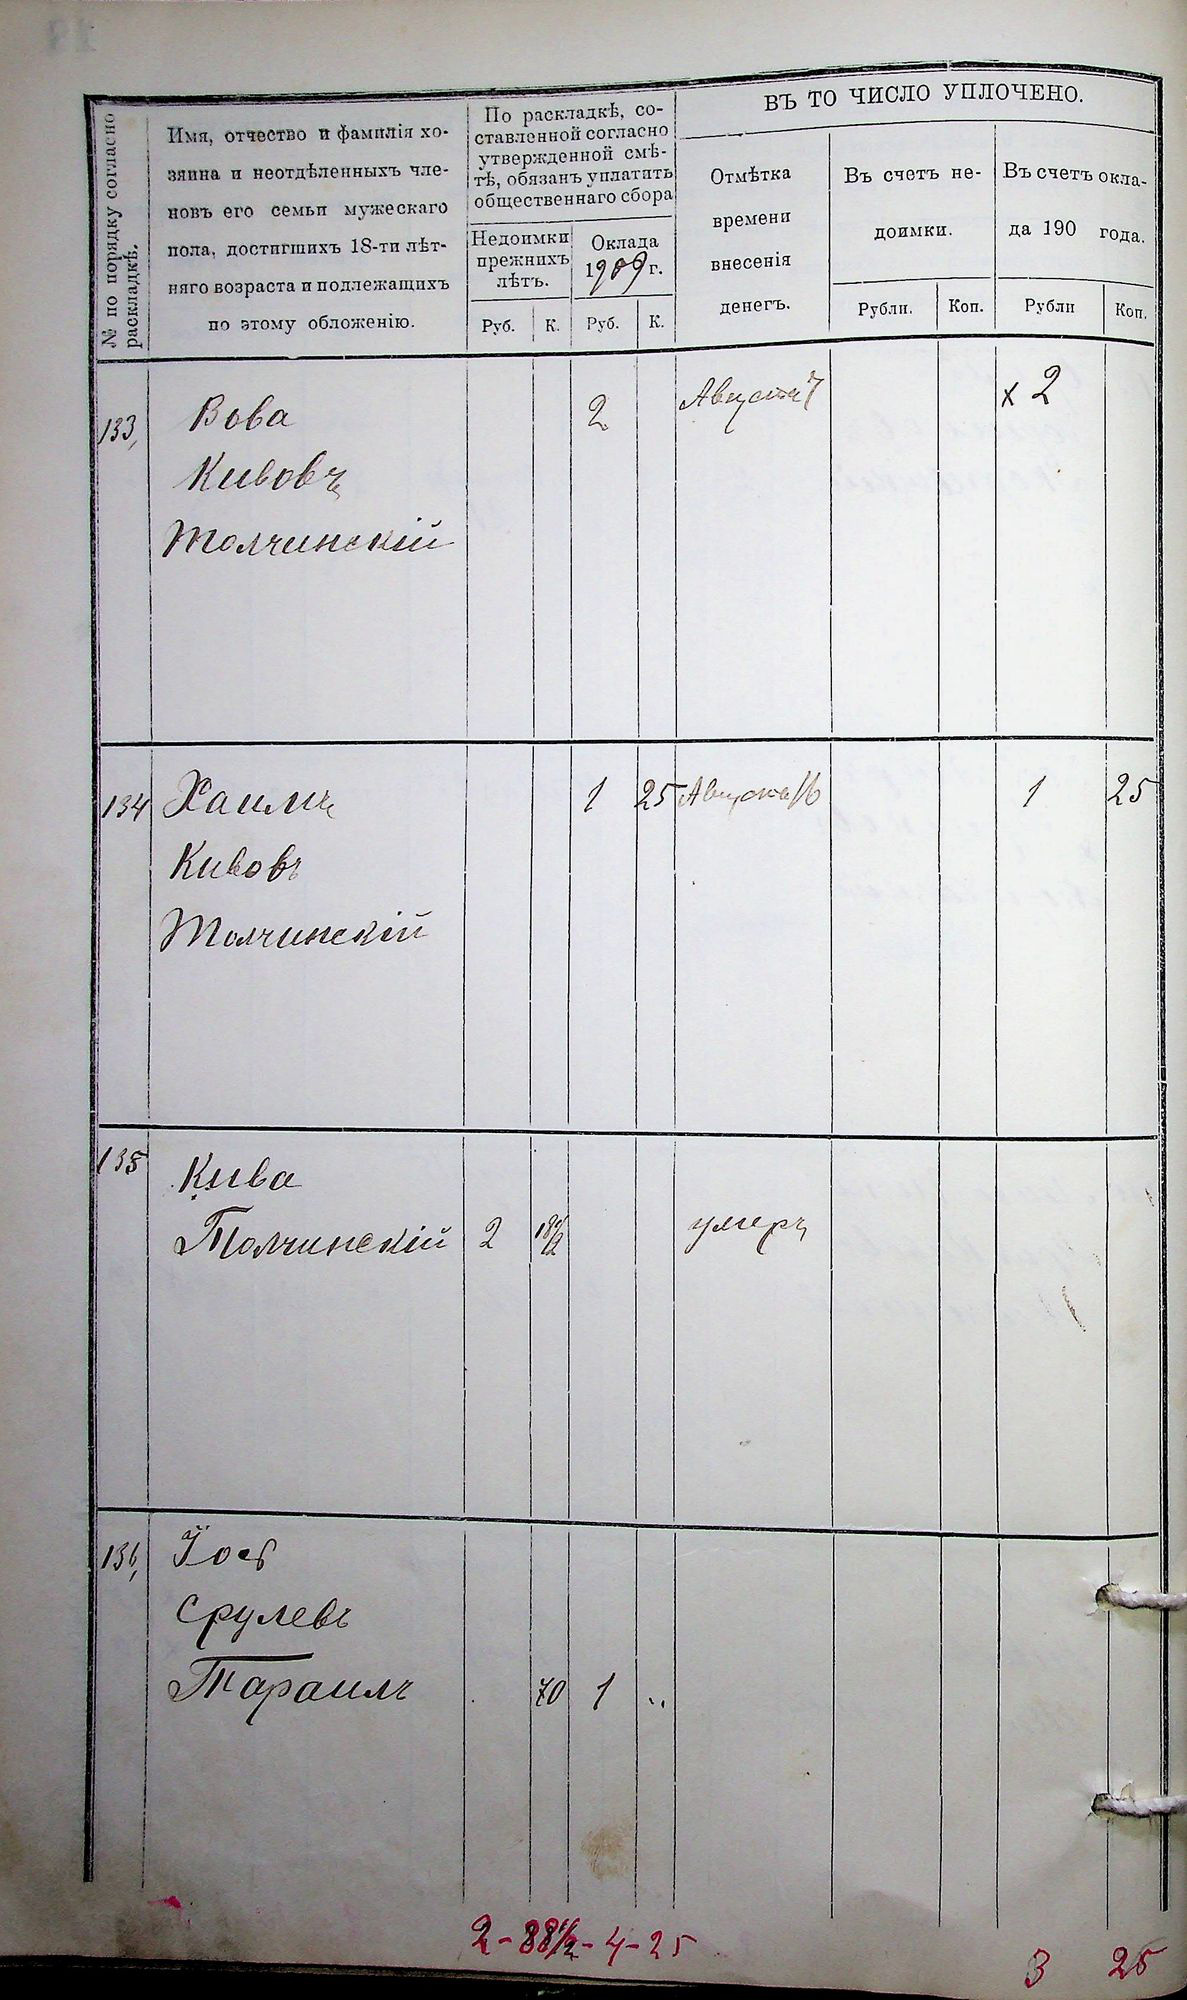 ВЪ ТО ЧИСЛО УПЛОЧЕНО.
№ по порядку согласно
раскладкѣ.
Имя, отчество и фамилія хо-
зяина и неотдѣленныхъ чле-
новъ его семьи мужескаго
пола, достигшихъ 18-ти лѣт-
няго возраста и подлежащихъ
по этому обложенію.
По раскладкѣ, со-
ставленной согласно
утвержденной смѣ-
тѣ, обязанъ уплатить
общественнаго сбора
Недоимки
прежнихъ
лѣтъ.
Оклада
1909 г.
Руб. К. Руб. К.
Отмѣтка
времени
внесенія
денегъ.
Въ счетъ не-
доимки.
Рубли. Коп.
Въ счетъ окла-
да 190 года.
Рубли Коп.
133, Вова 2 Августа 7 x 2
Кивовъ
Толчинскій
134 Хаимъ 1 25 Августа 16 1 25
Кивовъ
Толчинскій
135 Кива
Толчинскій 2 18 1/2 умеръ
136, Іос
Срулевъ
Тараилъ 70 1 ..
2 - 88 1/2 - 4 - 25
3 25